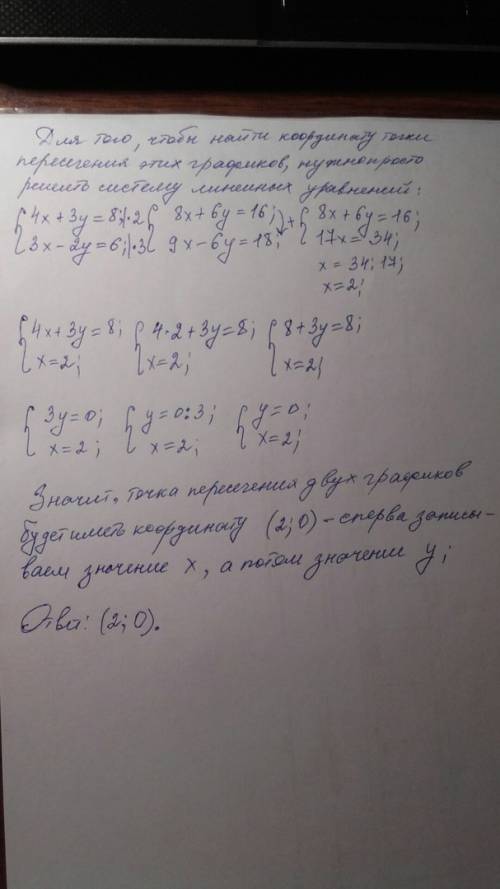 Для того, чтобы найти координату точки
пересечения этих графиков, нужно просто
решить систему линейных уравнений:
{4x+3y=8;|·2 {8x+6y=16; + {8x+6y=16;
{3x-2y=6;|·3 {9x-6y=18; {17x=34;
x=34:17;
x=2;
{4x+3y=8; {4·2+3y=8; {8+3y=8;
{x=2; {x=2; {x=2;
{3y=0; {y=0:3; {y=0;
{x=2; {x=2; {x=2;
Значит, точка пересечения двух графиков
будет иметь координату (2;0) - сперва записы-
ваем значение x, а потом значение y;
Ответ: (2;0).